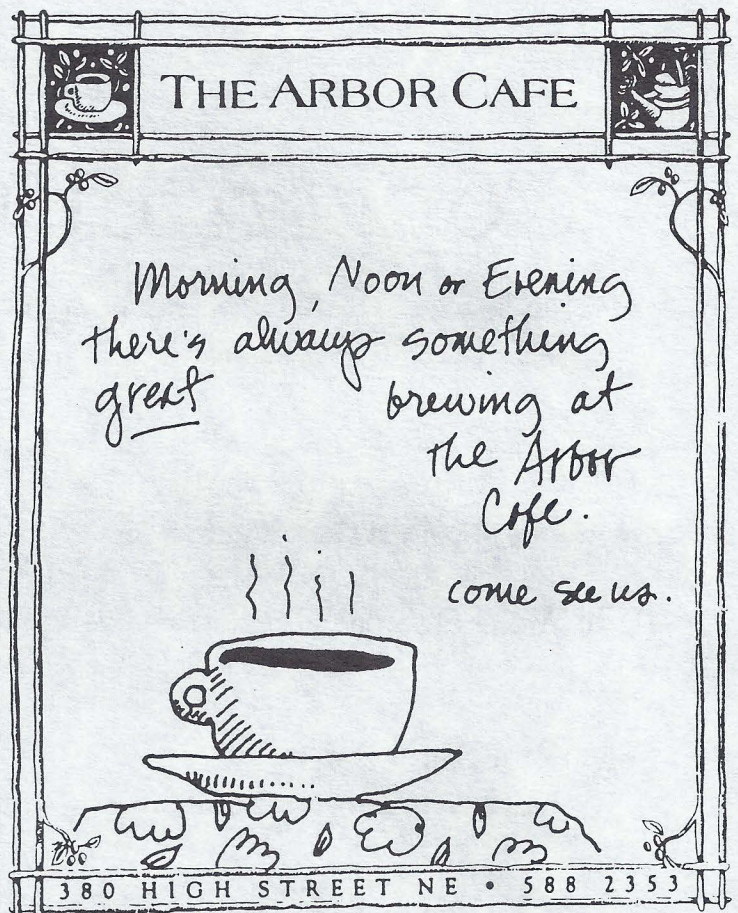 THE ARBOR CAFE
Morning, Noon or Evening
there's always something
great brewing at
the Arbor
Cafe.
come see us.
380 HIGH STREET NE • 588 2353